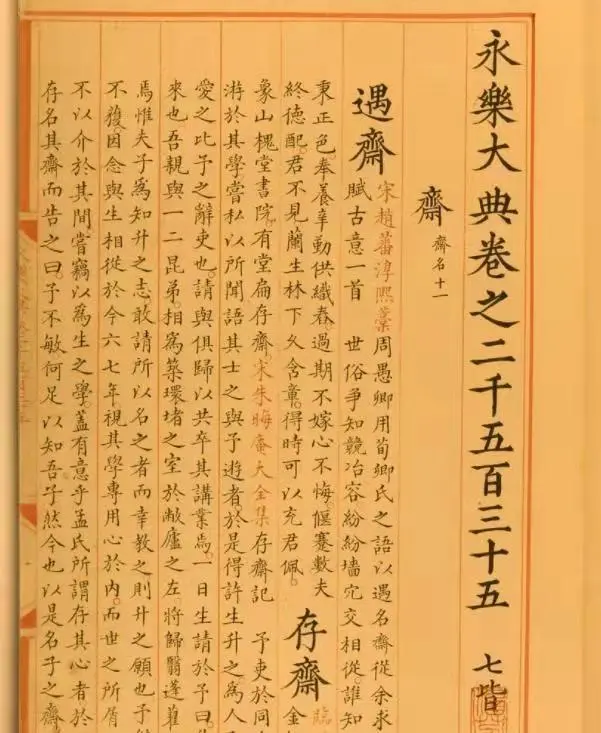 永樂大典卷之二千五百三十五 七皆
齋 齋名十一
遇齋
宋趙蕃淳熙藁周愚卿用荀卿氏之語以遇名齋從余求
賦古意一首 世俗爭知競冶容紛紛墻穴交相從誰知
秉正色。奉養辛勤供織舂。過期不嫁心不悔。偃蹇數夫
終德配。君不見蘭生林下久含章。得時可以充君佩。
存齋
臨
金
象山槐堂書院。有堂扁存齋。宋朱晦庵大全集存齋記 予吏於同
游於其學。嘗私以所聞語其士之與予遊者。於是得許生升之爲人
愛之。比予之辭吏也。請與俱歸以共卒其講業焉。一日生請於予曰
來也。吾親與一二昆弟。相爲築環堵之室於敝廬之左。將歸翳蓬藋
焉。惟夫子爲知升之志。敢請所以名之者而幸教之。則升之願也。予
不獲。因念與生相從於今六七年。視其學專用心於內。而世之所屑
不以介於其間。嘗竊以爲生之學。蓋有意乎孟氏所謂存其心者。於
存名其齋而告之曰。予不敏。何足以知吾子。然今也以是名子之齋